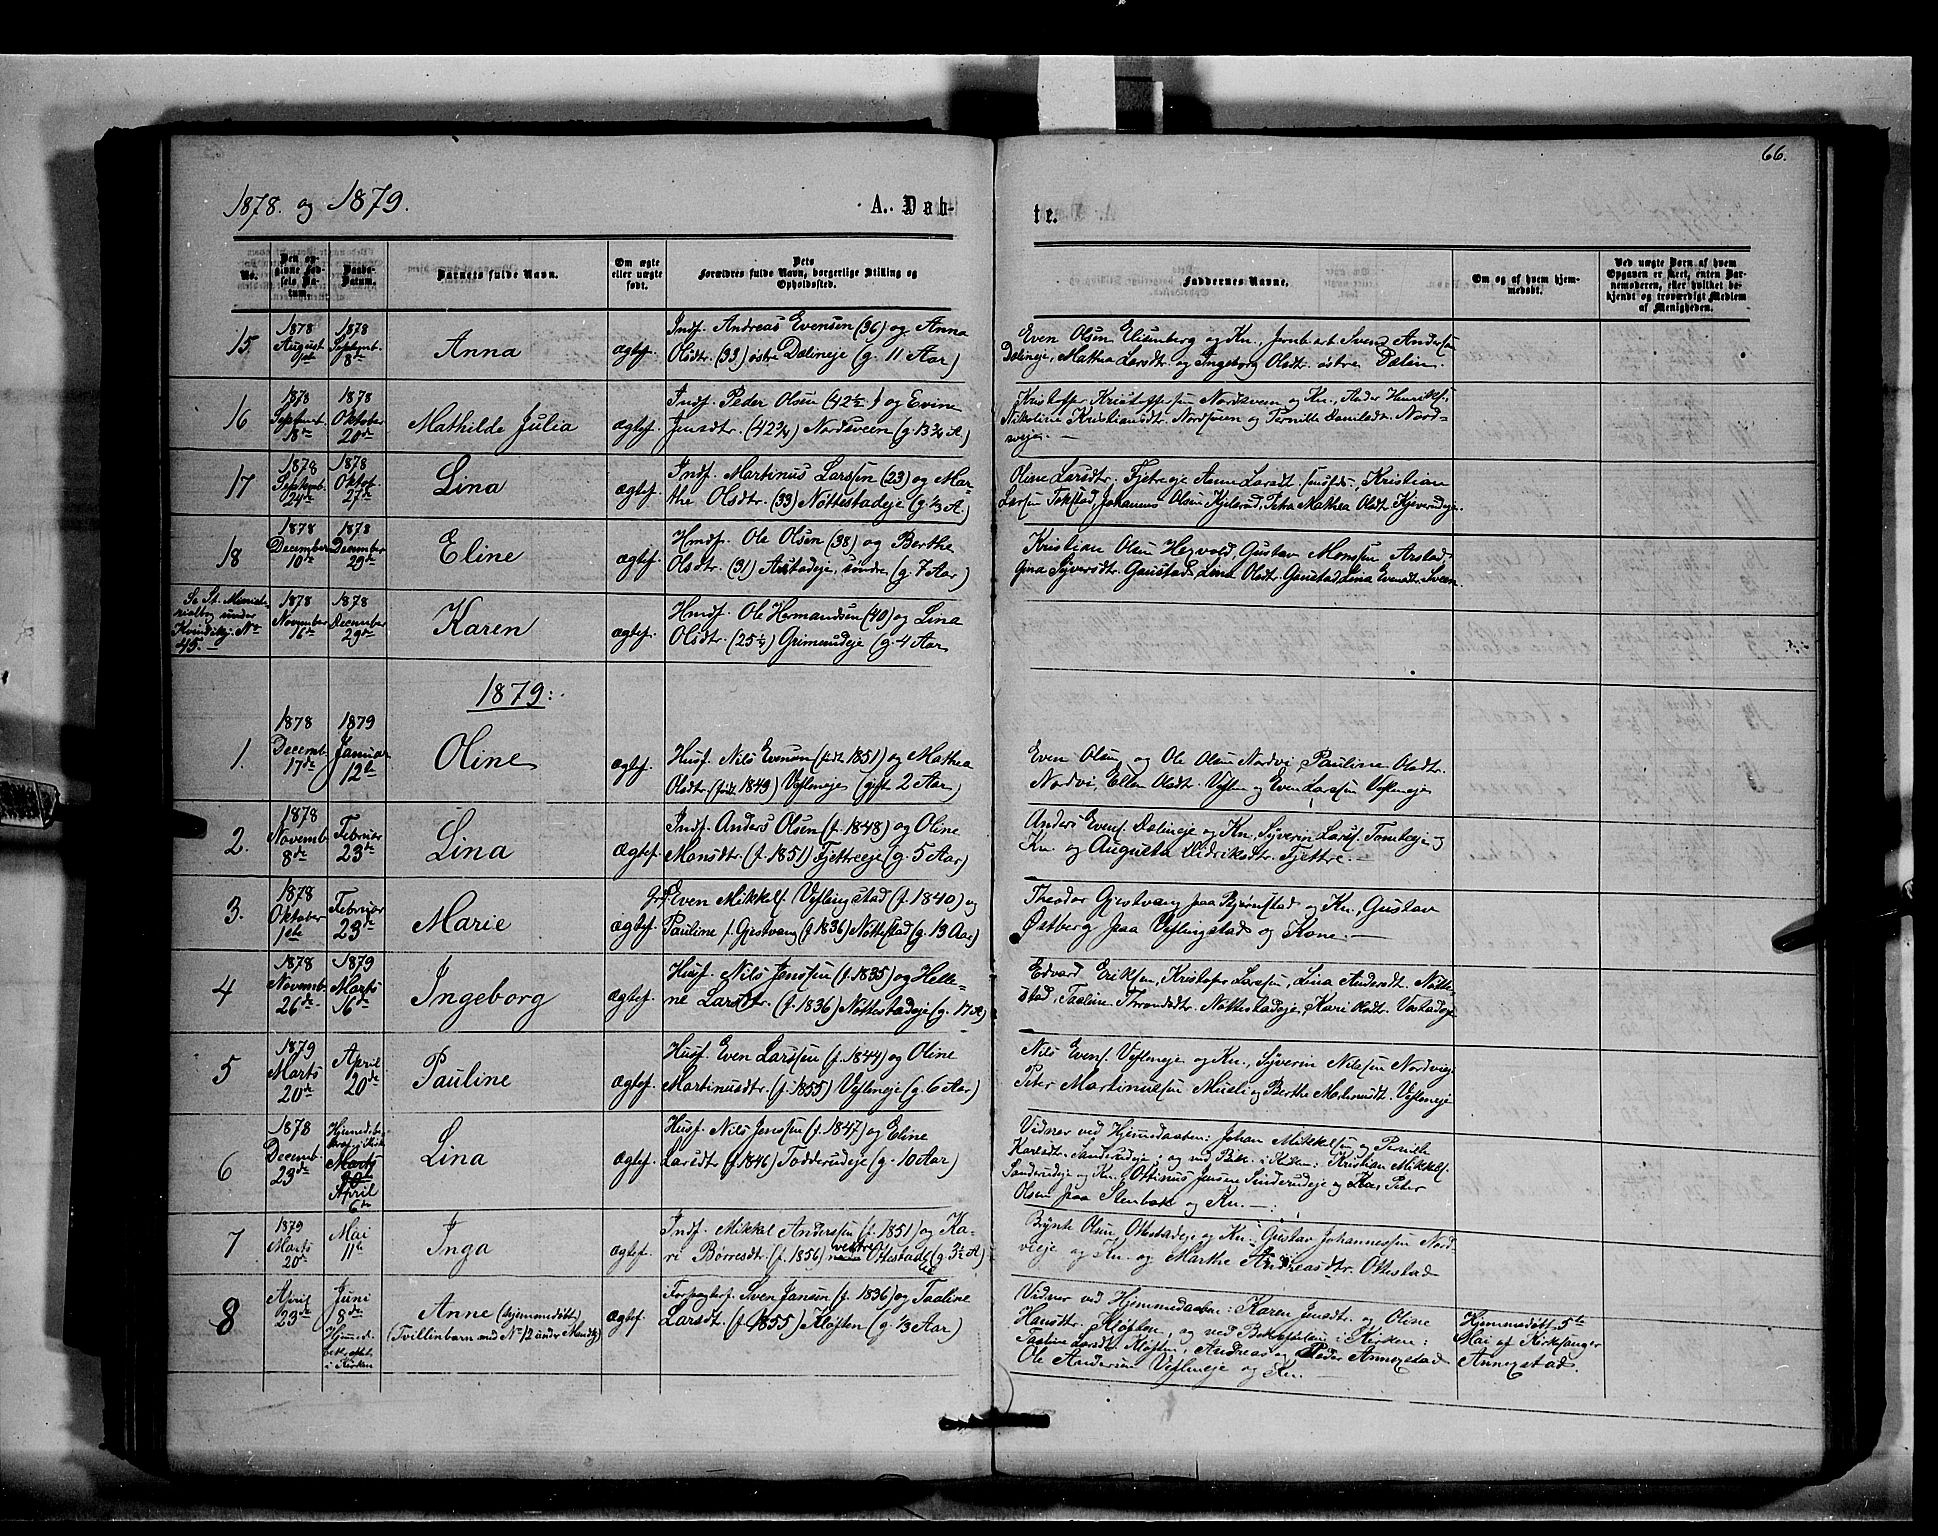 66.
1878. og 1879.
A. Døb-
te.
No.
Den op-
givne Fød-
sels Da-
tum.
Daabs-
Datum.
Barnets fulde Navn.
Om ægte
eller uægte
født.
Dets
Forældres fulde Navn, borgerlige Stilling og
Opholdssted.
Faddernes Navne.
Om og af hvem hjem-
medøbt.
Ved uægte Børn af hvem
Opgaven er sket, enten Bar-
nemoderen, eller hvilket be-
kjendt og troværdigt Medlem
af Menigheden.
15
1878
August
9de
1878
Septemb.
8de
Anna
ægtef.
Indf. Andreas Evensen (36) og Anna
Olsdtr. (33) østre Dælineje (g. 11 Aar)
Even Olsen Elisenberg og Kn., Jernb.arb. Svend Andersen
Dælineje, Mathea Larsdtr. og Ingeborg Olsdtr. østre Dælin.
16
1878
Septemb.
18de
1878
Oktober
20de
Mathilde Julia
ægtef.
Indf. Peder Olsen (42½) og Evine
Jensdtr. (42¾) Nordsveen (g. 13¾ A)
Kristoffer Kristoffersen Nordsveen og Kn., Peder Henriksf.
Nikoline Kristiansdtr. Nordsveen og Pernille Nord-
sveje. —
17
1878
Septemb.
24de
1878
Oktob.
27de
Lina
ægtef.
Indf. Martinus Larssen (23) og Mar-
the Olsdtr. (33) Nøttestadeje (g. ⅓ A)
Oline Larsdtr. Fjetreje Anne Larsdt Kristian
Larsen Tokstad, Johannes Olsen Kjelsrud, Petra Mathea Olsdt Kjeverudeje.
18
1878
December
10de
1878
December
29de
Eline
ægtef.
Hmdf. Ole Olsen (38) og Berthe
Olsdtr. (31) Arstadeje, søndre (g. 7 Aar)
Kristian Olsen Hegvold, Gustav Monsen Arstad,
Gina Syversdtr. Gaustad Lina Olsdtr. Gaustad Lina Evensdtr. Sveen
Se St. Minist-
rialbog under
Kvindekj. No
45. —
1878
November
16de
1878
December
29de
Karen
ægtef.
Hmdf. Ole Hermandsen (40) og Lina
Olsdtr. (25½) Grimerudeje (g. 4 Aar
1879:
1.
1878
Decemb.
17de
1879
Januar
12te
Oline
ægtef.
Husf. Nils Evensen (født 1851) og Mathea
Olsdtr. (født 1849) Veflineje (gift 2 Aar)
Even Olsen og Ole Olsen Nordvi, Pauline Olsdtr.
Nordvi, Ellen Olsdtr. Veflen og Even Larssen Veflineje
2.
1878
Novemb.
8de
Februar
23de
Lina
ægtef.
Indf. Anders Olsen (f. 1848) og Oline
Monsdtr. (f. 1851) Fjettreeje (g. 5 Aar)
Anders Evenf. Dælineje og Kn., Syverin Larsf. Tomteeje og
Kn. og Augusta Didriksdtr. Fjettre. —
3.
1878
Oktober
1ste
Februar
23de
Marie
ægtef.
Grd Even Mikkelf. Veflingstad (f. 1840) og
Pauline f. Gjestvang (f. 1836) Nøttestad (g. 13 Aar)
Theodor Gjestvang paa Bjørnstad og Kn., Gustav
Østberg paa Veflingstad og Kone. —
4
1878
Novemb.
26de
1879
Marts
16de
Ingeborg
ægtef.
Husf. Nils Jenssen (f. 1835) og Helle-
ne Larsdtr. (f. 1836) Nøttestadeje (g. 17 A)
Edvard Eriksen, Kristofer Larssen, Lina Andersdt. Nøtte-
stad, Taaline Throndsdt. Nøttestadeje, Kari Olsdtr. Vestadeje
5
1879
Marts
20de
April
20de
Pauline
ægtef.
Husf. Even Larssen (f. 1844) og Oline
Martinusdtr. (f. 1855) Veflineje (g. 6 Aar)
Nils Evenf. Veflineje og Kn., Syverin Nilssen Nordvieje
Peter Martinussen Musli og Berthe Martinusdt. Veflineje
6
1878
Decemb.
23de
Hjemmedøbt
April
6te
Lina
ægtef.
Husf. Nils Jenssen (f. 1847) og Eline
Larsdt (f. 1846) Todderudeje (g. 10 Aar)
Vidner ved Hjemmedaaben: Johan Mikkelsen og Pernille
Karlsdt. Sanderudeje; og ved Bek. i Kirken: Kristian Mikkelf.
Sanderudeje og Kn., Ottinus Jensen Sinderudeje og Peter
Olsen paa Stenbæk og Kn. —
7
1879
Marts
20de
Mai
11te
Inga
ægtef.
Indf. Mikkel Anderssen (f. 1851) og Ka-
ri Børresdt. (f. 1856) vestre Ottestadeje (g. 3½ A)
Brynte Olsen Ottestadeje og Kn., Gustav Johannessen Nord-
vieje og Kn. og Marthe Andreasdtr. Ottestad
8
April
23de
Juni
8de
Hjemmed.
bekræftet
i Kirken
Anne (hjemmedøbt)
(Tvillinbarn med No 12 under Mandkj)
ægtef.
Forpagterf. Sven Jansen (f. 1836) og Taaline
Larsdt. (f. 1855) Kløften (g. ⅓ Aar)
Vidner ved Hjemmedaaben: Karen Jensdt. og Oline
Hansdtr. Kløften, og ved Bekræftelsen i Kirken:
Taaline Larsdt. Kløften, Andreas og Peder Annexstad
Ole Andersen Veflineje og Kn. —
Hjemmedøbt 5te
Mai af Kirkesanger
Annexstad.